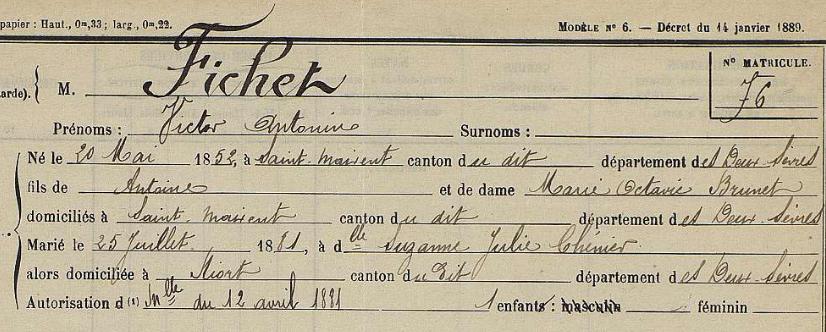 papier : Haut., 0m,33 ; larg., 0m,22. MODÈLE N° 6. — Décret du 14 janvier 1889.
N° MATRICULE.
arde). M. Fichet 76
Prénoms : Victor Antonin Surnoms :
Né le 20 Mai 1852, à Saint-Maixent canton du dit département des Deux-Sèvres
fils de Antoine et de dame Marie Octavie Brunet
domiciliés à Saint-Maixent canton du dit département des Deux-Sèvres
Marié le 25 Juillet 1881, à dlle Suzanne Julie Chénier
alors domiciliée à Niort canton du dit département des Deux-Sèvres
Autorisation d (1) Mlle du 12 avril 1881 1 enfants : masculin féminin